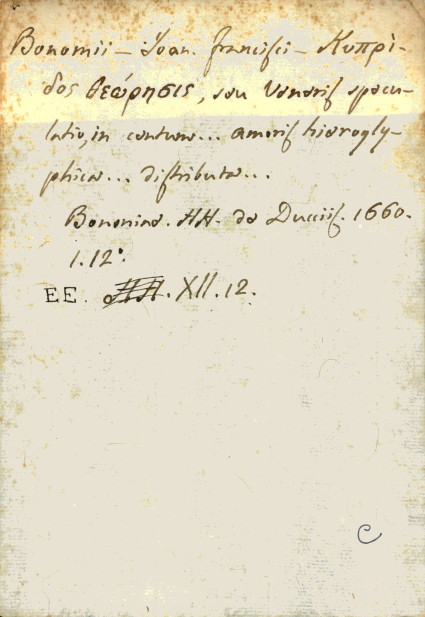 Bonomii - Joan. Francisci - Κυπρί-
δος θεώρησις, seu Veneris specu-
latio, in centum... amoris hierogly-
phica... distributa...
Bononiae. HH. de Ducciis. 1660.
1. 12°.
EE. XII. 12.
C